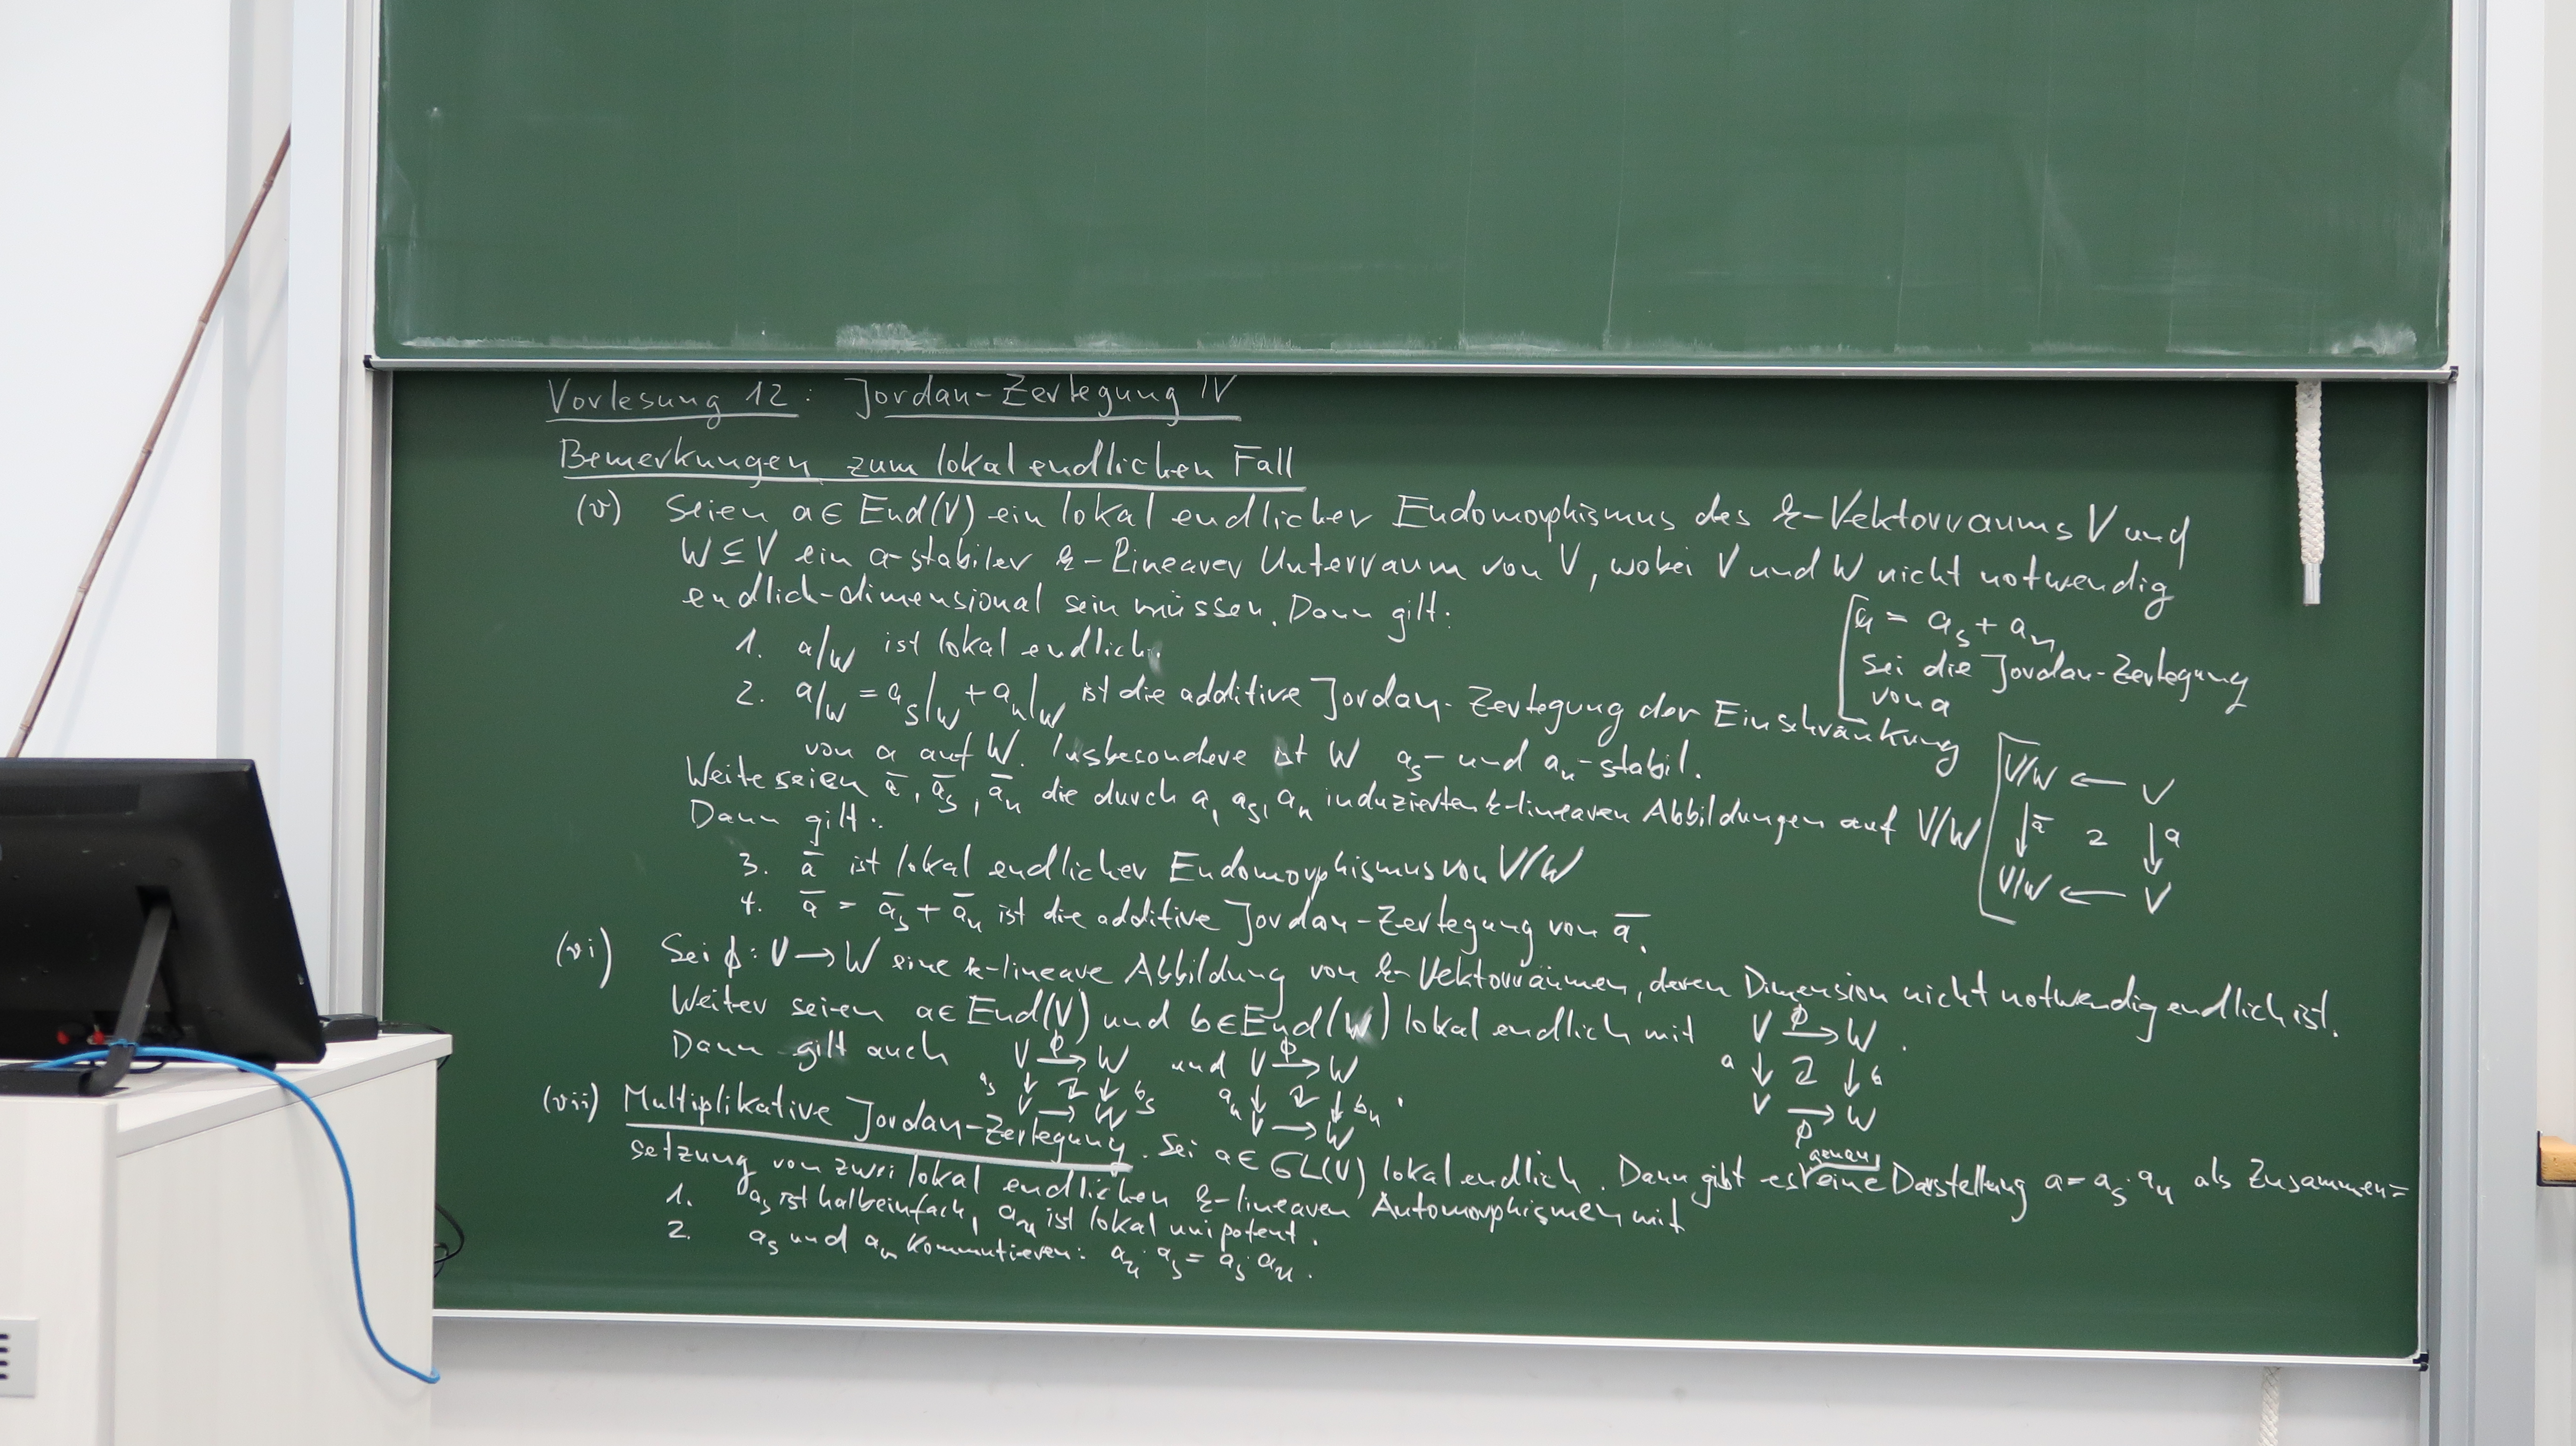 Vorlesung 12: Jordan-Zerlegung IV
Bemerkungen zum lokal endlichen Fall
(v) Seien a ∈ End(V) ein lokal endlicher Endomorphismus des k-Vektorraums V und
W ⊆ V ein a-stabiler k-linearer Unterraum von V, wobei V und W nicht notwendig
endlich-dimensional sein müssen. Dann gilt:
1. a|W ist lokal endlich.
[a = a_s + a_n
sei die Jordan-Zerlegung
von a
2. a|W = a_s|W + a_n|W ist die additive Jordan-Zerlegung der Einschränkung
von a auf W. Insbesondere ist W a_s- und a_n-stabil.
Weite seien ā, ā_s, ā_n die durch a, a_s, a_n induzierten k-linearen Abbildungen auf V/W
[V/W ← V
↓ ā 2 ↓ a
V/W ← V
Dann gilt:
3. ā ist lokal endlicher Endomorphismus von V/W
4. ā = ā_s + ā_n ist die additive Jordan-Zerlegung von ā.
(vi) Sei ϕ: V → W eine k-lineare Abbildung von k-Vektorräumen, deren Dimension nicht notwendig endlich ist.
Weiter seien a ∈ End(V) und b ∈ End(W) lokal endlich mit
V →ϕ W .
a ↓ 2 ↓ b
V → W
ϕ
Dann gilt auch V →ϕ W und V →ϕ W
a_s ↓ 2 ↓ b_s a_n ↓ 2 ↓ b_n .
V → W V → W
(vii) Multiplikative Jordan-Zerlegung. Sei a ∈ GL(V) lokal endlich. Dann gibt es genau eine Darstellung a = a_s·a_u als Zusammen=
setzung von zwei lokal endlichen k-linearen Automorphismen mit
1. a_s ist halbeinfach, a_u ist lokal unipotent.
2. a_s und a_u kommutieren: a_u·a_s = a_s·a_u.